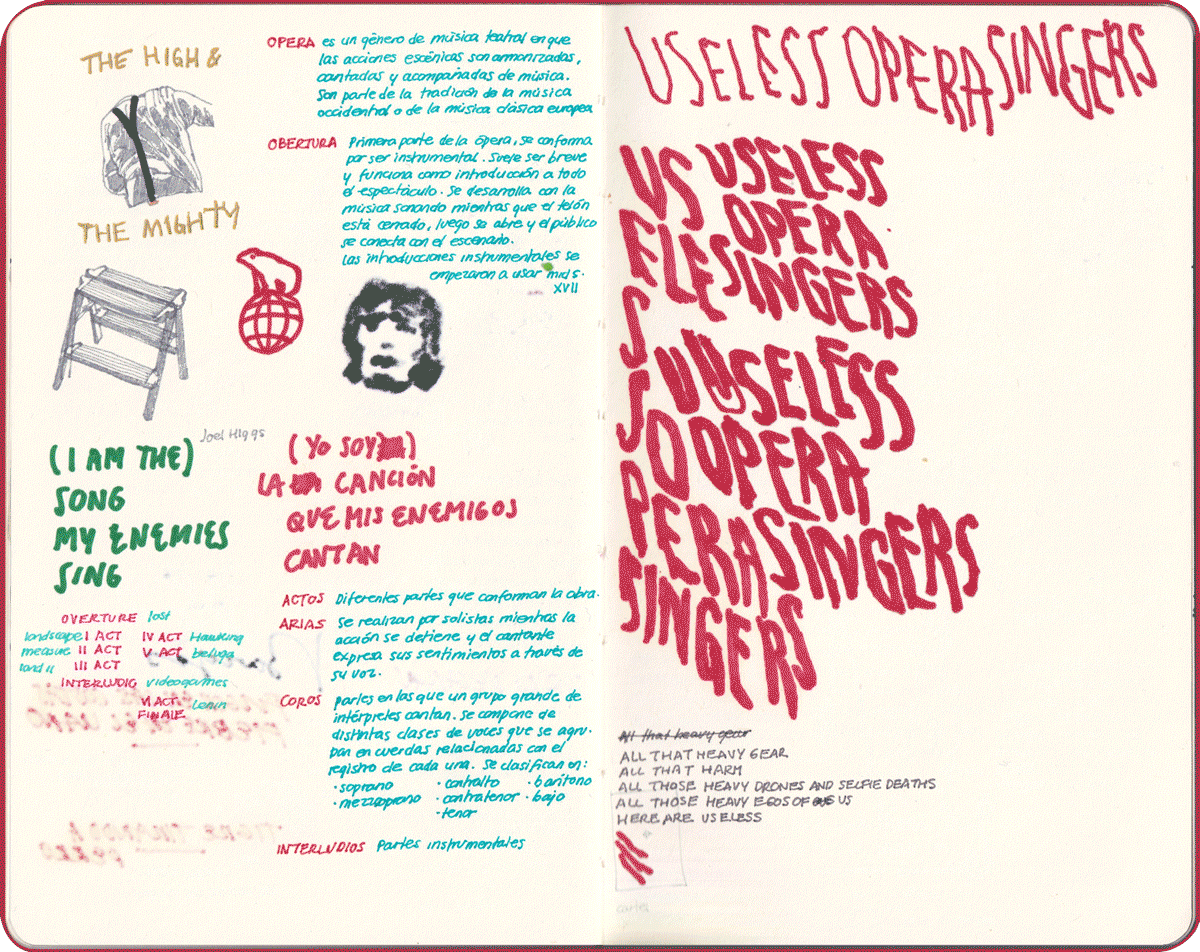 THE HIGH &
THE MIGHTY
OPERA es un género de música teatral en que
las acciones escénicas son armonizadas,
cantadas y acompañadas de música.
Son parte de la tradición de la música
occidental o de la música clásica europea
OBERTURA Primera parte de la ópera, se conforma
por ser instrumental. Suele ser breve
y funciona como introducción a todo
el espectáculo. Se desarrolla con la
música sonando mientras que el telón
está cerrado, luego se abre y el público
se conecta con el escenario.
Las introducciones instrumentales se
empezaron a usar mid s.
XVII
Joel Higgs
(I AM THE)
SONG
MY ENEMIES
SING
(YO SOY)
LA CANCIÓN
QUE MIS ENEMIGOS
CANTAN
OVERTURE lost
landscape I ACT IV ACT Hawking
measure II ACT V ACT beluga
land II III ACT
INTERLUDIO videogames
VI ACT Lenin
FINALE
ACTOS Diferentes partes que conforman la obra.
ARIAS Se realizan por solistas mientras la
acción se detiene y el cantante
expresa sus sentimientos a través de
su voz.
COROS Partes en las que un grupo grande de
intérpretes cantan. Se compone de
distintas clases de voces que se agru-
pan en cuerdas relacionadas con el
registro de cada una. Se clasifican en:
· soprano · contralto · barítono
· mezzosoprano · contratenor · bajo
· tenor
INTERLUDIOS Partes instrumentales
USELESS OPERA SINGERS
US USELESS
OPERA
ELE SINGERS
S
S U USELESS
O OPERA
PERA SINGERS
SINGERS
All that heavy gear
ALL THAT HEAVY GEAR
ALL THAT HARM
ALL THOSE HEAVY DRONES AND SELFIE DEATHS
ALL THOSE HEAVY EGOS OF US
HERE ARE USELESS